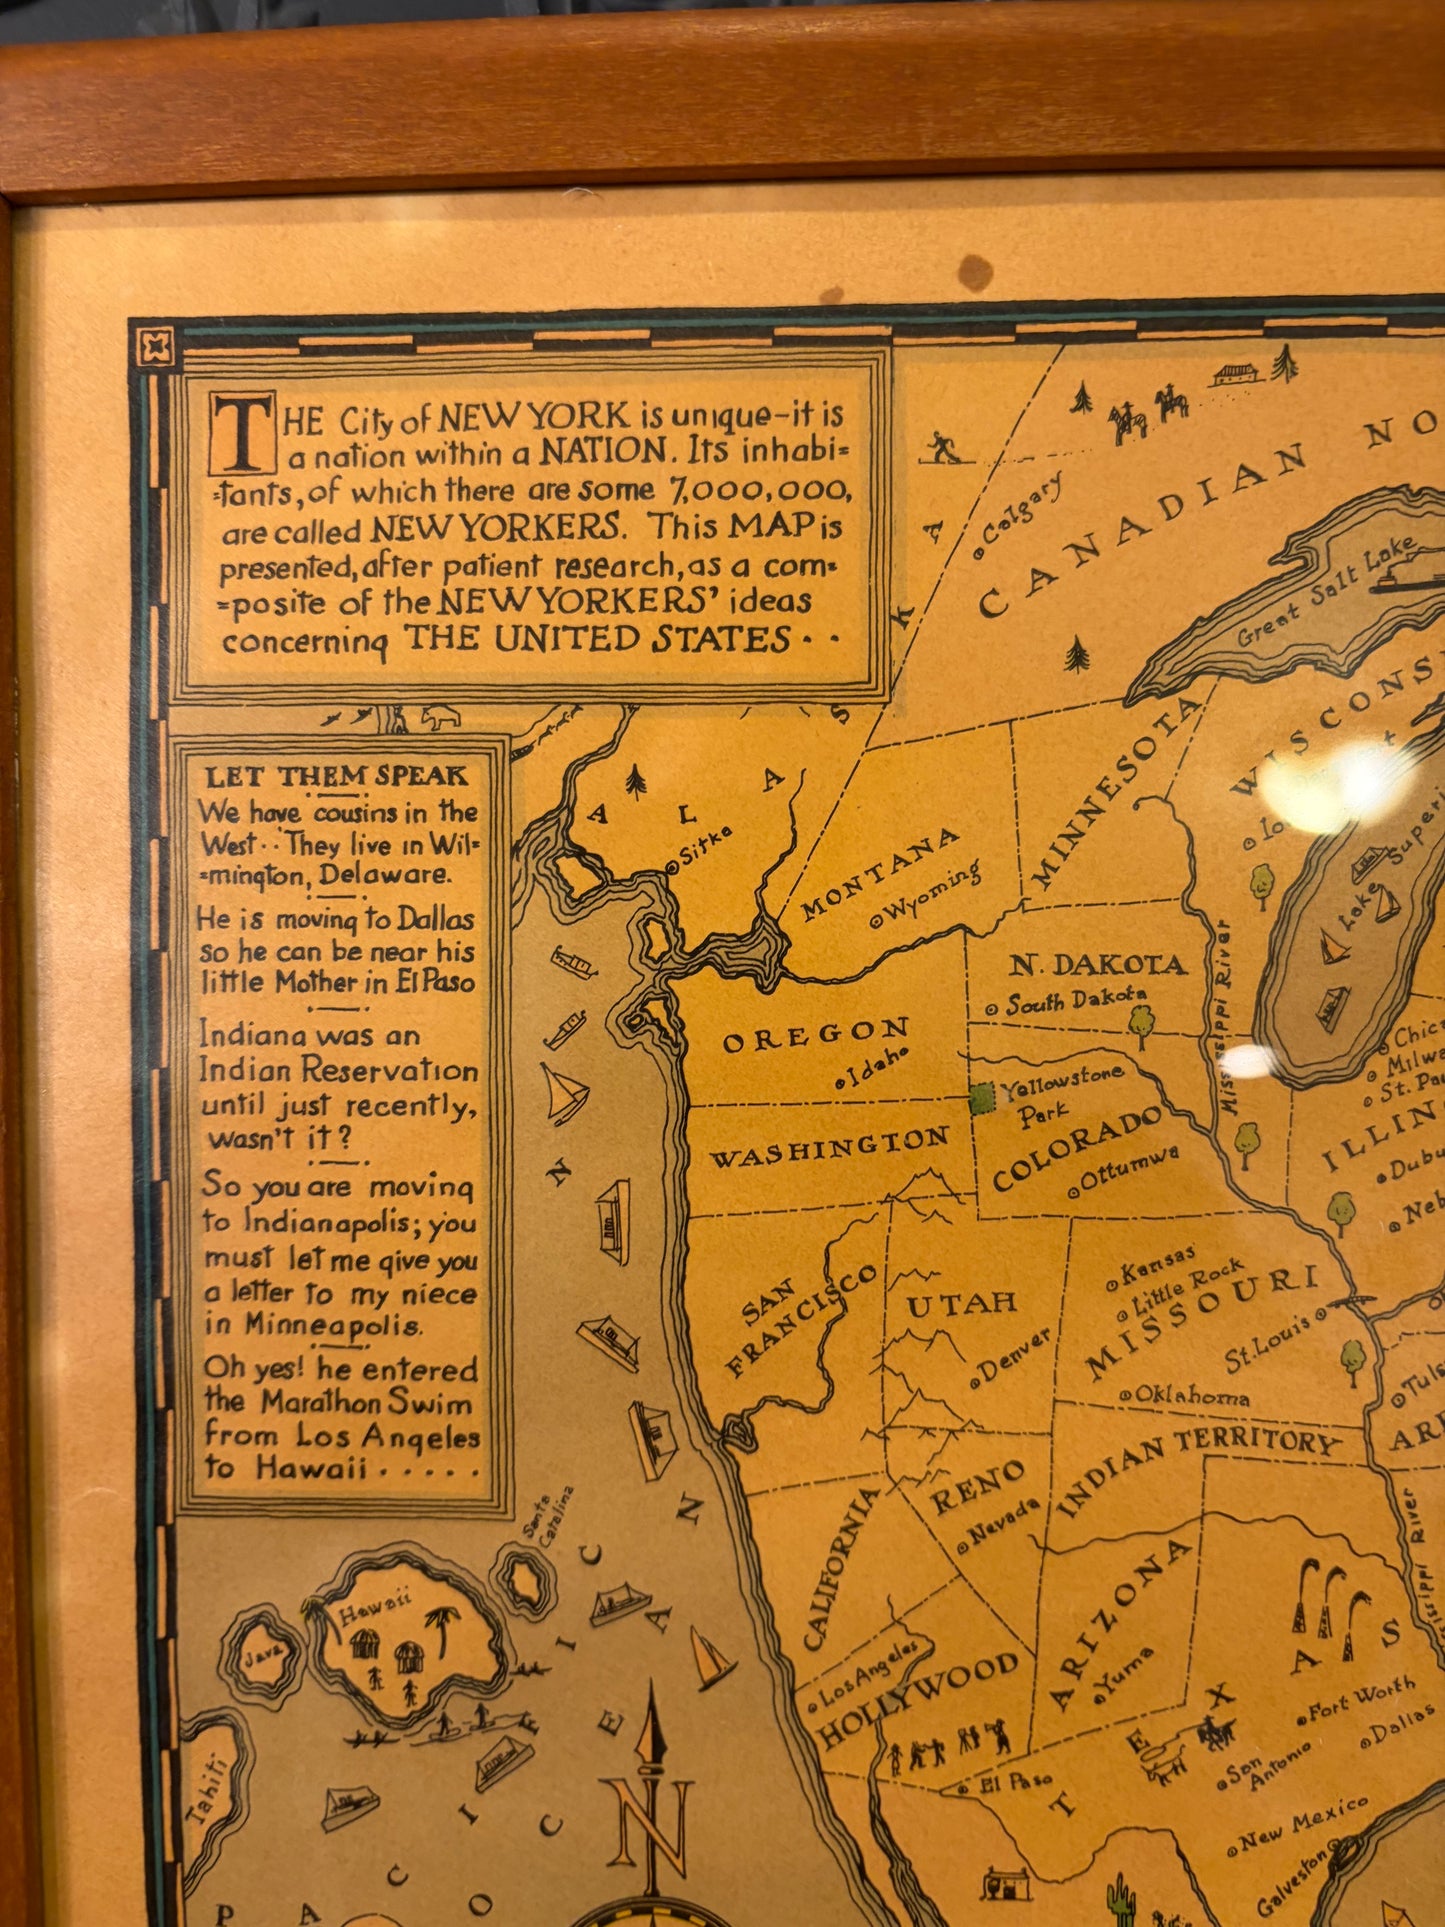 THE City of NEW YORK is unique-it is
a nation within a NATION. Its inhabi=
=tants, of which there are some 7,000,000,
are called NEW YORKERS. This MAP is
presented, after patient research, as a com=
=posite of the NEW YORKERS' ideas
concerning THE UNITED STATES · ·
LET THEM SPEAK
We have cousins in the
West·· They live in Wil=
=mington, Delaware.
He is moving to Dallas
so he can be near his
little Mother in El Paso
Indiana was an
Indian Reservation
until just recently,
wasn't it?
So you are moving
to Indianapolis; you
must let me give you
a letter to my niece
in Minneapolis.
Oh yes! he entered
the Marathon Swim
from Los Angeles
to Hawaii · · · · ·
CANADIAN NO
Calgary
ALASKA
Sitka
Great Salt Lake
WISCONS
MINNESOTA
MONTANA
Wyoming
Lake Superi
N. DAKOTA
South Dakota
Mississippi River
OREGON
Idaho
Yellowstone
Park
Chic
Milwa
St. Pau
WASHINGTON
COLORADO
Ottumwa
ILLIN
Dubu
Neb
SAN
FRANCISCO
UTAH
Denver
Kansas
Little Rock
MISSOURI
St. Louis
Oklahoma
Tuls
INDIAN TERRITORY
ARK
RENO
Nevada
CALIFORNIA
ARIZONA
Yuma
Los Angeles
HOLLYWOOD
El Paso
TEXAS
Fort Worth
Dallas
San
Antonio
New Mexico
Galveston
Mississippi River
Santa
Catalina
Hawaii
Java
Tahiti
N
PACIFIC
OCEAN
N